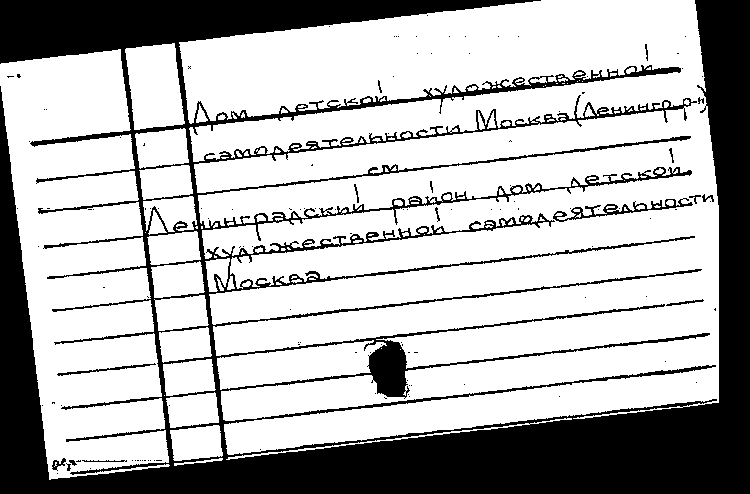 Дом детской художественной
самодеятельности. Москва (Ленингр. р-н)
см.
Ленинградский район. Дом детской
художественной самодеятельности
Москва.